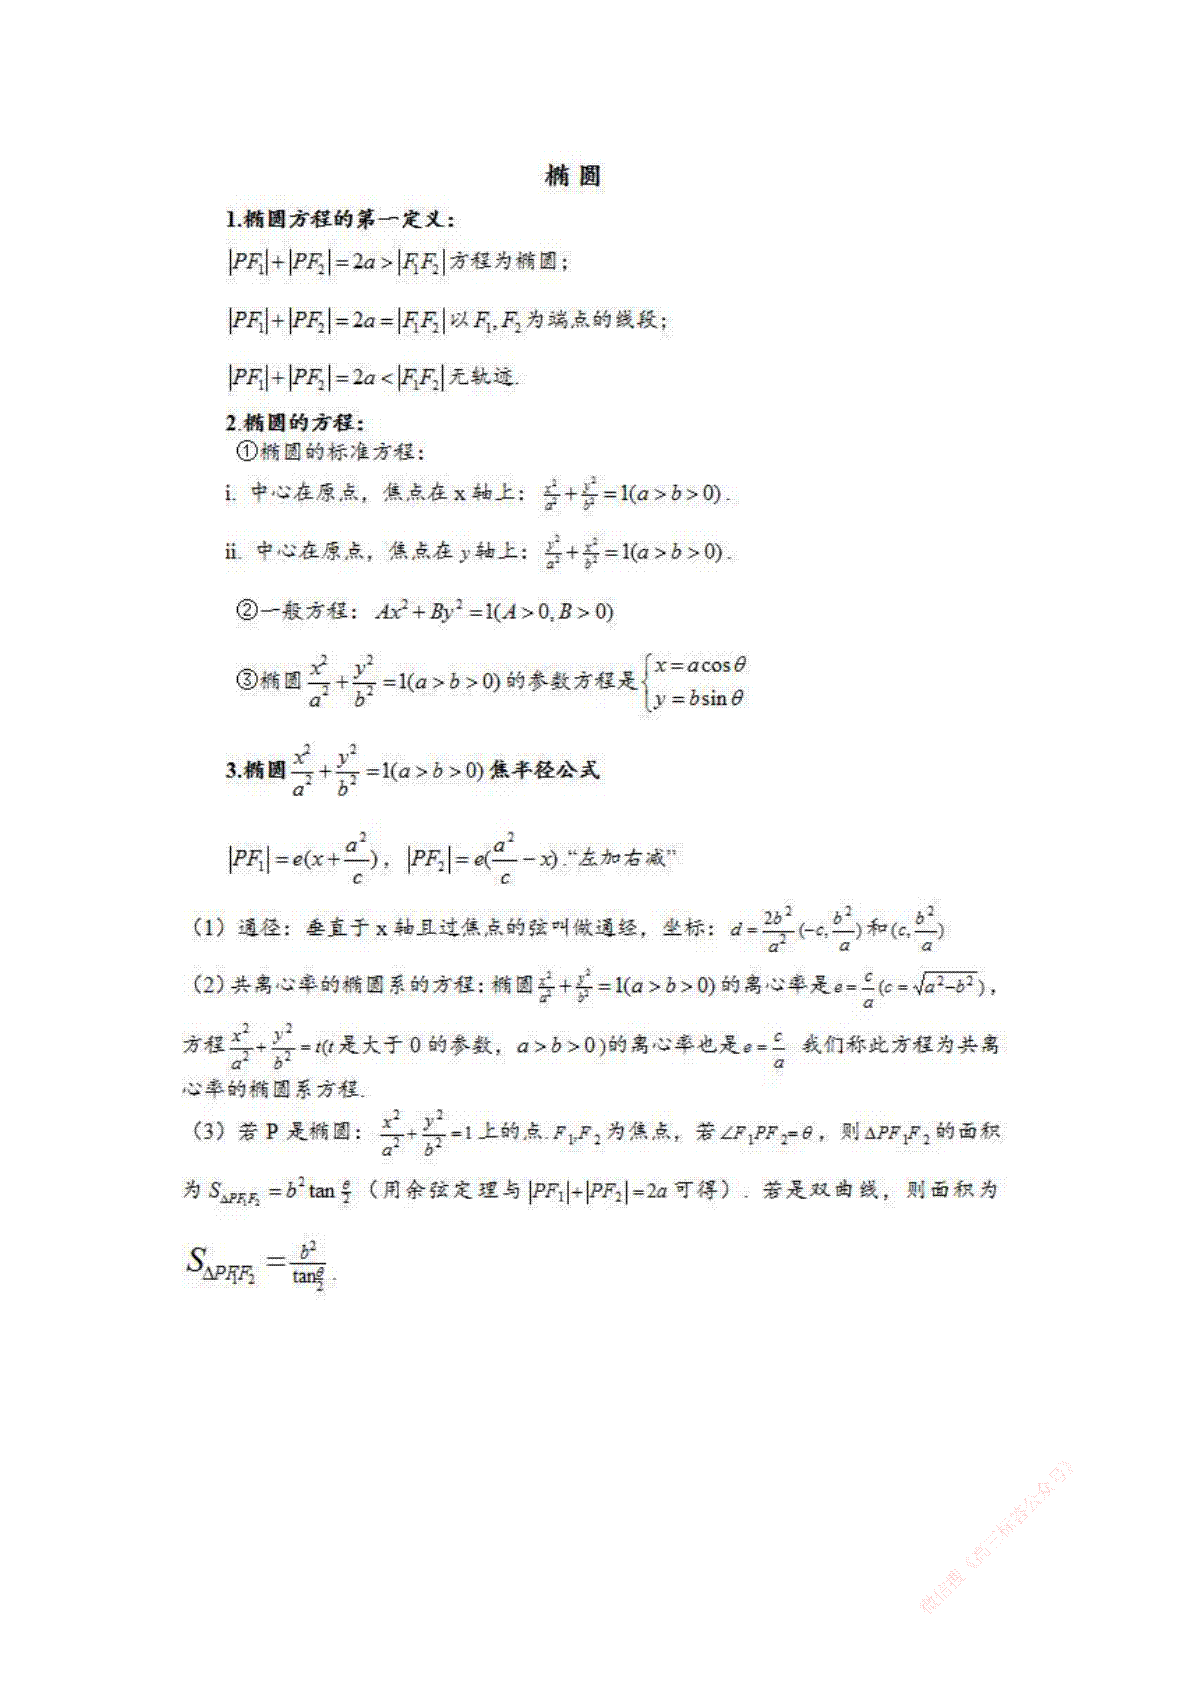 椭 圆
1.椭圆方程的第一定义：
|PF₁|+|PF₂|=2a>|F₁F₂|方程为椭圆；
|PF₁|+|PF₂|=2a=|F₁F₂|以F₁,F₂为端点的线段；
|PF₁|+|PF₂|=2a<|F₁F₂|无轨迹.
2.椭圆的方程：
①椭圆的标准方程：
i. 中心在原点，焦点在 x 轴上：x²/a²+y²/b²=1(a>b>0).
ii. 中心在原点，焦点在 y 轴上：y²/a²+x²/b²=1(a>b>0).
②一般方程：Ax²+By²=1(A>0,B>0)
③椭圆x²/a²+y²/b²=1(a>b>0)的参数方程是{x=acosθ y=bsinθ
3.椭圆x²/a²+y²/b²=1(a>b>0)焦半径公式
|PF₁|=e(x+a²/c)，|PF₂|=e(a²/c−x).“左加右减”
（1）通径：垂直于 x 轴且过焦点的弦叫做通经，坐标：d=2b²/a²(−c,b²/a)和(c,b²/a)
（2）共离心率的椭圆系的方程：椭圆x²/a²+y²/b²=1(a>b>0)的离心率是e=c/a(c=√(a²−b²))，
方程x²/a²+y²/b²=t(t是大于 0 的参数，a>b>0)的离心率也是e=c/a 我们称此方程为共离
心率的椭圆系方程.
（3）若 P 是椭圆：x²/a²+y²/b²=1上的点.F₁,F₂为焦点，若∠F₁PF₂=θ，则ΔPF₁F₂的面积
为S_ΔPF₁F₂=b²tan θ/2（用余弦定理与|PF₁|+|PF₂|=2a可得）. 若是双曲线，则面积为
S_ΔPF₁F₂=b²/tan θ/2.
微信搜《高三标答公众号》